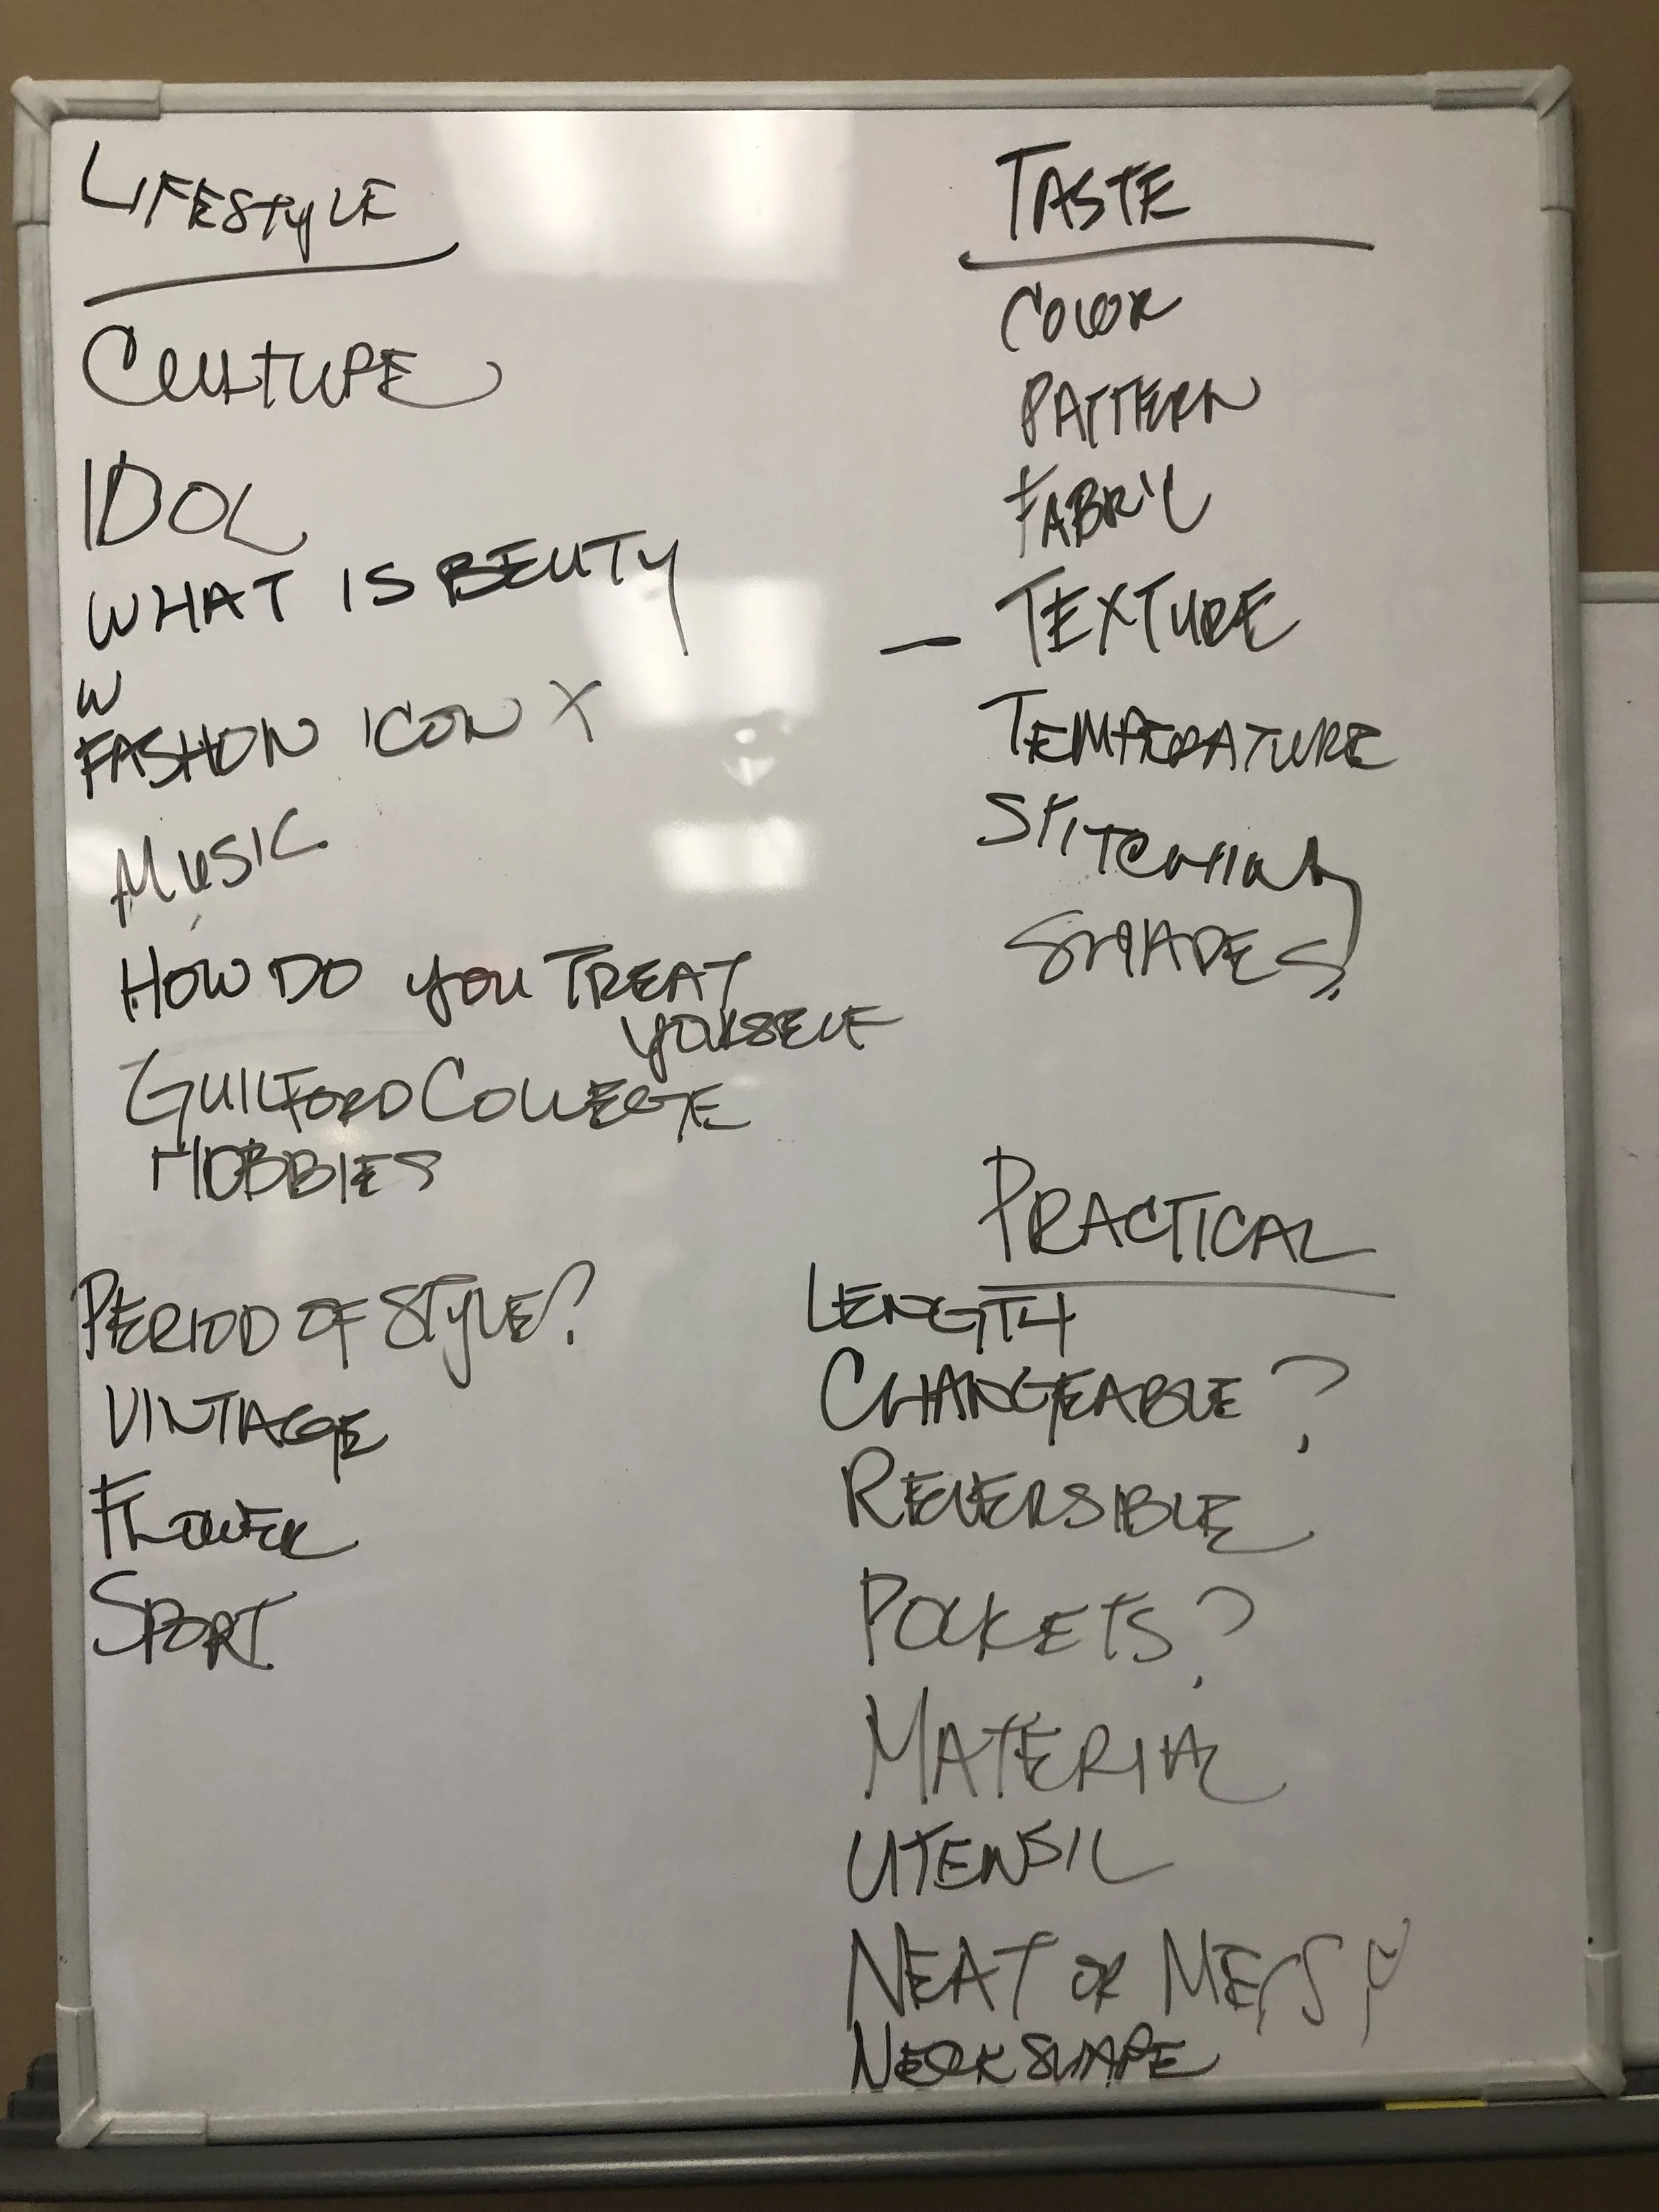 LIFESTYLE
CULTURE
IDOL
WHAT IS BEUTY
W
FASHION ICON X
MUSIC
HOW DO YOU TREAT
YOURSELF
GUILFORD COLLEGE
HOBBIES
PERIOD OF STYLE?
VINTAGE
FLOWER
SPORT
TASTE
COLOR
PATTERN
FABRIC
— TEXTURE
TEMPERATURE
STITCHING
SHAPES
PRACTICAL
LENGTH
CHANGEABLE?
REVERSIBLE
POCKETS?
MATERIAL
UTENSIL
NEAT OR MESSY
NECK SHAPE